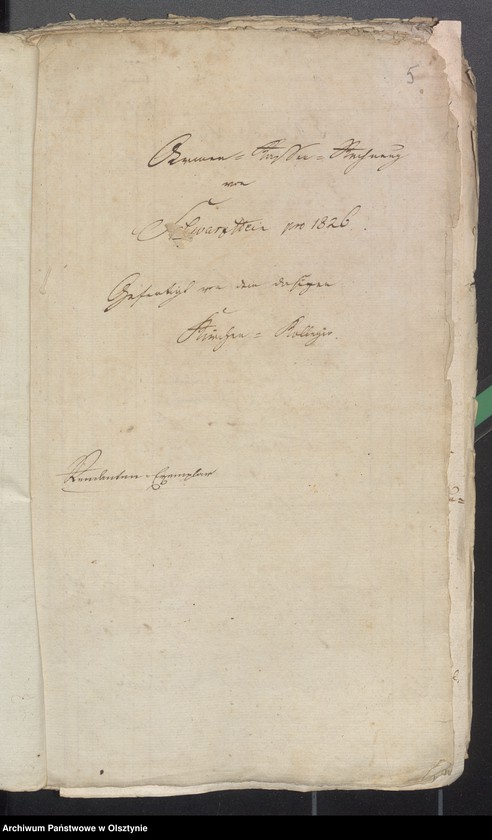 5.
Armen = Kassen = Rechnung
von
Schwarzstein pro 1826.
Gefertigt von dem dasigen
Kirchen = Kollegio.
Rendanten-Exemplar
Archiwum Państwowe w Olsztynie